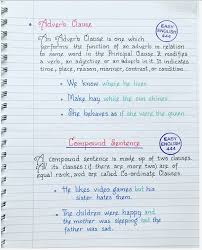 Adverb Clause
EASY ENGLISH 444
An Adverb Clause is one which
performs the function of an adverb in relation
to some word in the Principal Clause. It modifies
a verb, an adjective or an adverb in it. It indicates
time, place, reason, manner, contrast, or condition.
We know where he lives
Make hay while the sun shines
She behaves as if she were the queen
Compound Sentence
EASY ENGLISH 444
A compound sentence is made up of two clauses.
All its clauses (if there are more than two) are of
equal rank, and are called Co-ordinate Clauses.
He likes video games but his
sister hates them.
The children were happy and
the mother was sleeping but the
father was sad.